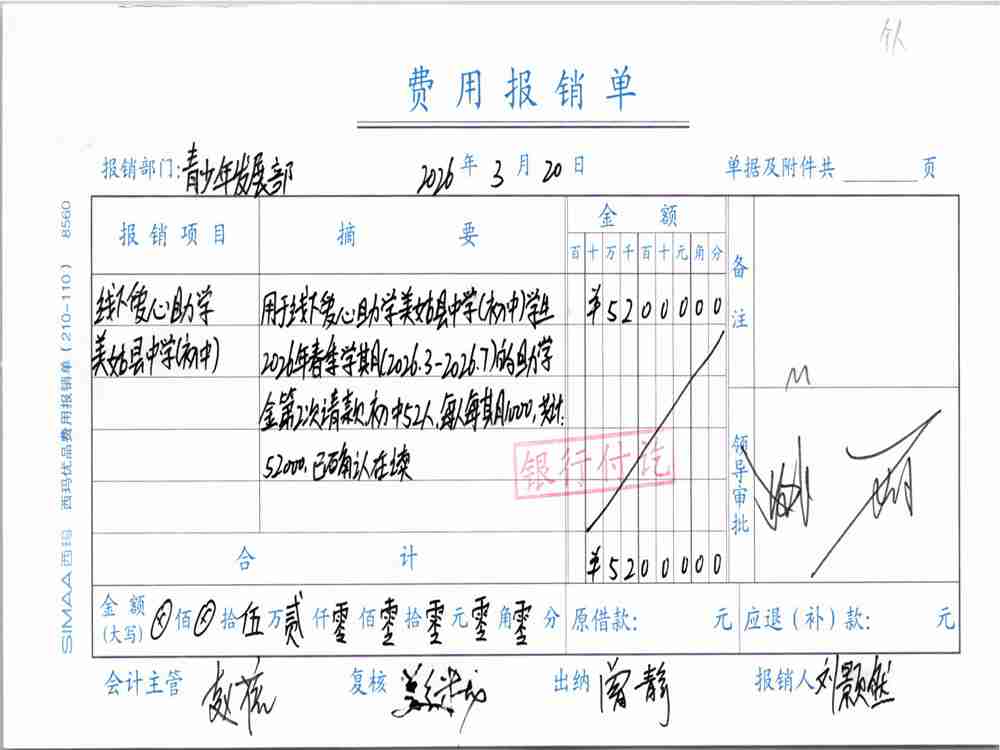 费用报销单
报销部门:青少年发展部 2026年3月20日 单据及附件共 页
报销项目 摘要 金额 备注
百十万千百十元角分
线下爱心助学 用于线下爱心助学美姑县中学(初中)学生 ¥5200000
美姑县中学(初中) 2026年春季学期(2026.3-2026.7)的助学
金第2次请款初中52人,每人每期1000,共计:
52000,已确认在读
银行付讫
领导审批
合计 ¥5200000
金额(大写) ⊗佰⊗拾伍万贰仟零佰零拾零元零角零分 原借款: 元 应退(补)款: 元
会计主管 复核 出纳 曾静 报销人 刘颢然
SIMAA西玛 西玛优品费用报销单(210-110) 8560